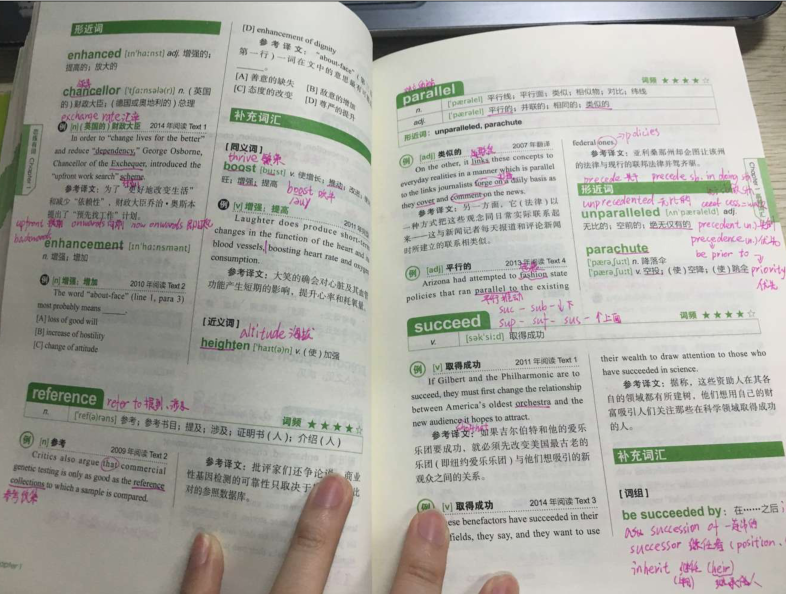 形近词
enhanced [ɪnˈhɑ:nst] adj. 增强的;
提高的; 放大的
chancellor [ˈtʃɑ:nsələ(r)] n. (英国
的) 财政大臣; (德国或奥地利的) 总理
exchange rate 汇率
例 [n] (英国的) 财政大臣 2014 年阅读 Text 1
In order to “change lives for the better”
and reduce “dependency,” George Osborne,
Chancellor of the Exchequer, introduced the
“upfront work search” scheme.
参考译文: 为了 “更好地改变生活”
和减少 “依赖性”, 财政大臣乔治·奥斯本
提出了 “预先找工作” 计划。
enhancement [ɪnˈhɑ:nsmənt]
n. 增强; 增加
例 [n] 增强; 增加 2010 年阅读 Text 2
The word “about-face” (line 1, para 3)
most probably means
[A] loss of good will
[B] increase of hostility
[C] change of attitude
[D] enhancement of dignity
参考译文: “about-face”
第一行) 一词在文中的意思最有可
[A] 善意的缺失 [B] 敌意的增加
[C] 态度的改变 [D] 尊严的提升
补充词汇
[同义词]
thrive
boost [bu:st] v. 使增长; 推动;
旺; 增强; 提高
例 [v] 增强; 提高 2011 年
Laughter does produce short-term
changes in the function of the heart and
blood vessels, boosting heart rate and oxygen
consumption.
参考译文: 大笑的确会对心脏及其血管
功能产生短期的影响, 提升心率和耗氧量
[近义词]
altitude 海拔
heighten [ˈhaɪt(ə)n] v. (使) 加强
reference refer to 提到、涉及
n. [ˈref(ə)rəns] 参考; 参考书目; 提及; 涉及; 证明书 (人); 介绍 (人) 词频 ★★★★☆
例 [n] 参考 2009 年阅读 Text 2
Critics also argue that commercial
genetic testing is only as good as the reference
collections to which a sample is compared.
参考译文: 批评家们还争论说, 商业
性基因检测的可靠性只取决于
对的参照数据库。
parallel 词频 ★★★★☆
n. [ˈpærəlel] 平行线; 平行面; 类似; 相似物; 对比; 纬线
adj. [ˈpærəlel] 平行的; 并联的; 相同的; 类似的
形近词: unparalleled, parachute
例 [adj] 类似的 2007 年翻译
On the other, it links these concepts to
everyday realities in a manner which is parallel
to the links journalists forge on a daily basis as
they cover and comment on the news.
参考译文: 另一方面, 它 (法律) 以
一种方式把这些观念同日常实际联系起
来——这与新闻记者每天报道和评论新闻
时所建立的联系相类似。
例 [adj] 平行的 2013 年阅读 Text 4
Arizona had attempted to fashion state
policies that ran parallel to the existing
federal ones. →policies
参考译文: 亚利桑那州却企图让该州
的法律与现行的联邦法律并驾齐驱。
形近词
unprecedented 无比的
unparalleled [ʌnˈpærəleld] adj.
无比的; 空前的; 绝无仅有的
be prior to
priority
parachute
[ˈpærəʃu:t] n. 降落伞
[ˈpærəʃu:t] v. 空投; (使) 空降; (使) 跳伞
suc – sub – ↓下
sup – suf – sus – ↑上面
succeed 词频 ★★★★☆
v. [səkˈsi:d] 取得成功
例 [v] 取得成功 2011 年阅读 Text 1
If Gilbert and the Philharmonic are to
succeed, they must first change the relationship
between America's oldest orchestra and the
new audience it hopes to attract.
参考译文: 如果吉尔伯特和他的爱乐
乐团要成功, 就必须先改变美国最古老的
乐团 (即纽约爱乐乐团) 与他们想吸引的新
观众之间的关系。
例 [v] 取得成功 2014 年阅读 Text 3
ese benefactors have succeeded in their
fields, they say, and they want to use
their wealth to draw attention to those who
have succeeded in science.
参考译文: 据称, 这些资助人在其各
自的领域都有所建树, 他们想用自己的财
富吸引人们关注那些在科学领域取得成功
的人。
补充词汇
[词组]
be succeeded by: 在……之后;
succession of 一连串的
successor 继任者 (position
inherit 继任 (heir)